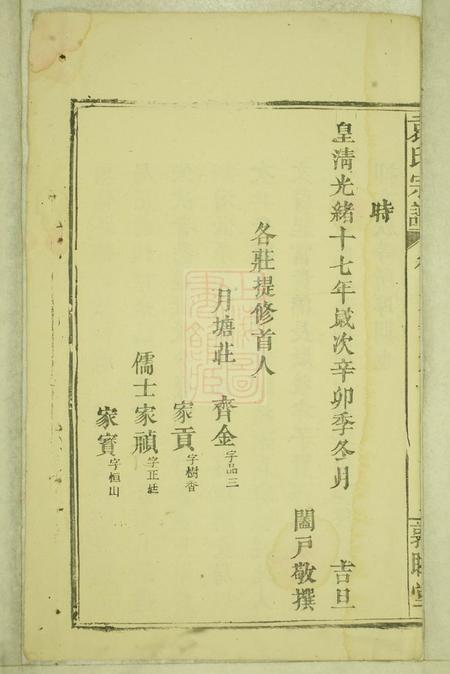 袁氏宗譜
敦睦堂
時
皇清光緒十七年歲次辛卯季冬月 吉旦
闔戶敬撰
各莊提修首人
月塘莊 齊金字品三
家貢字樹香
儒士家禎字正廷
家寶字恒山